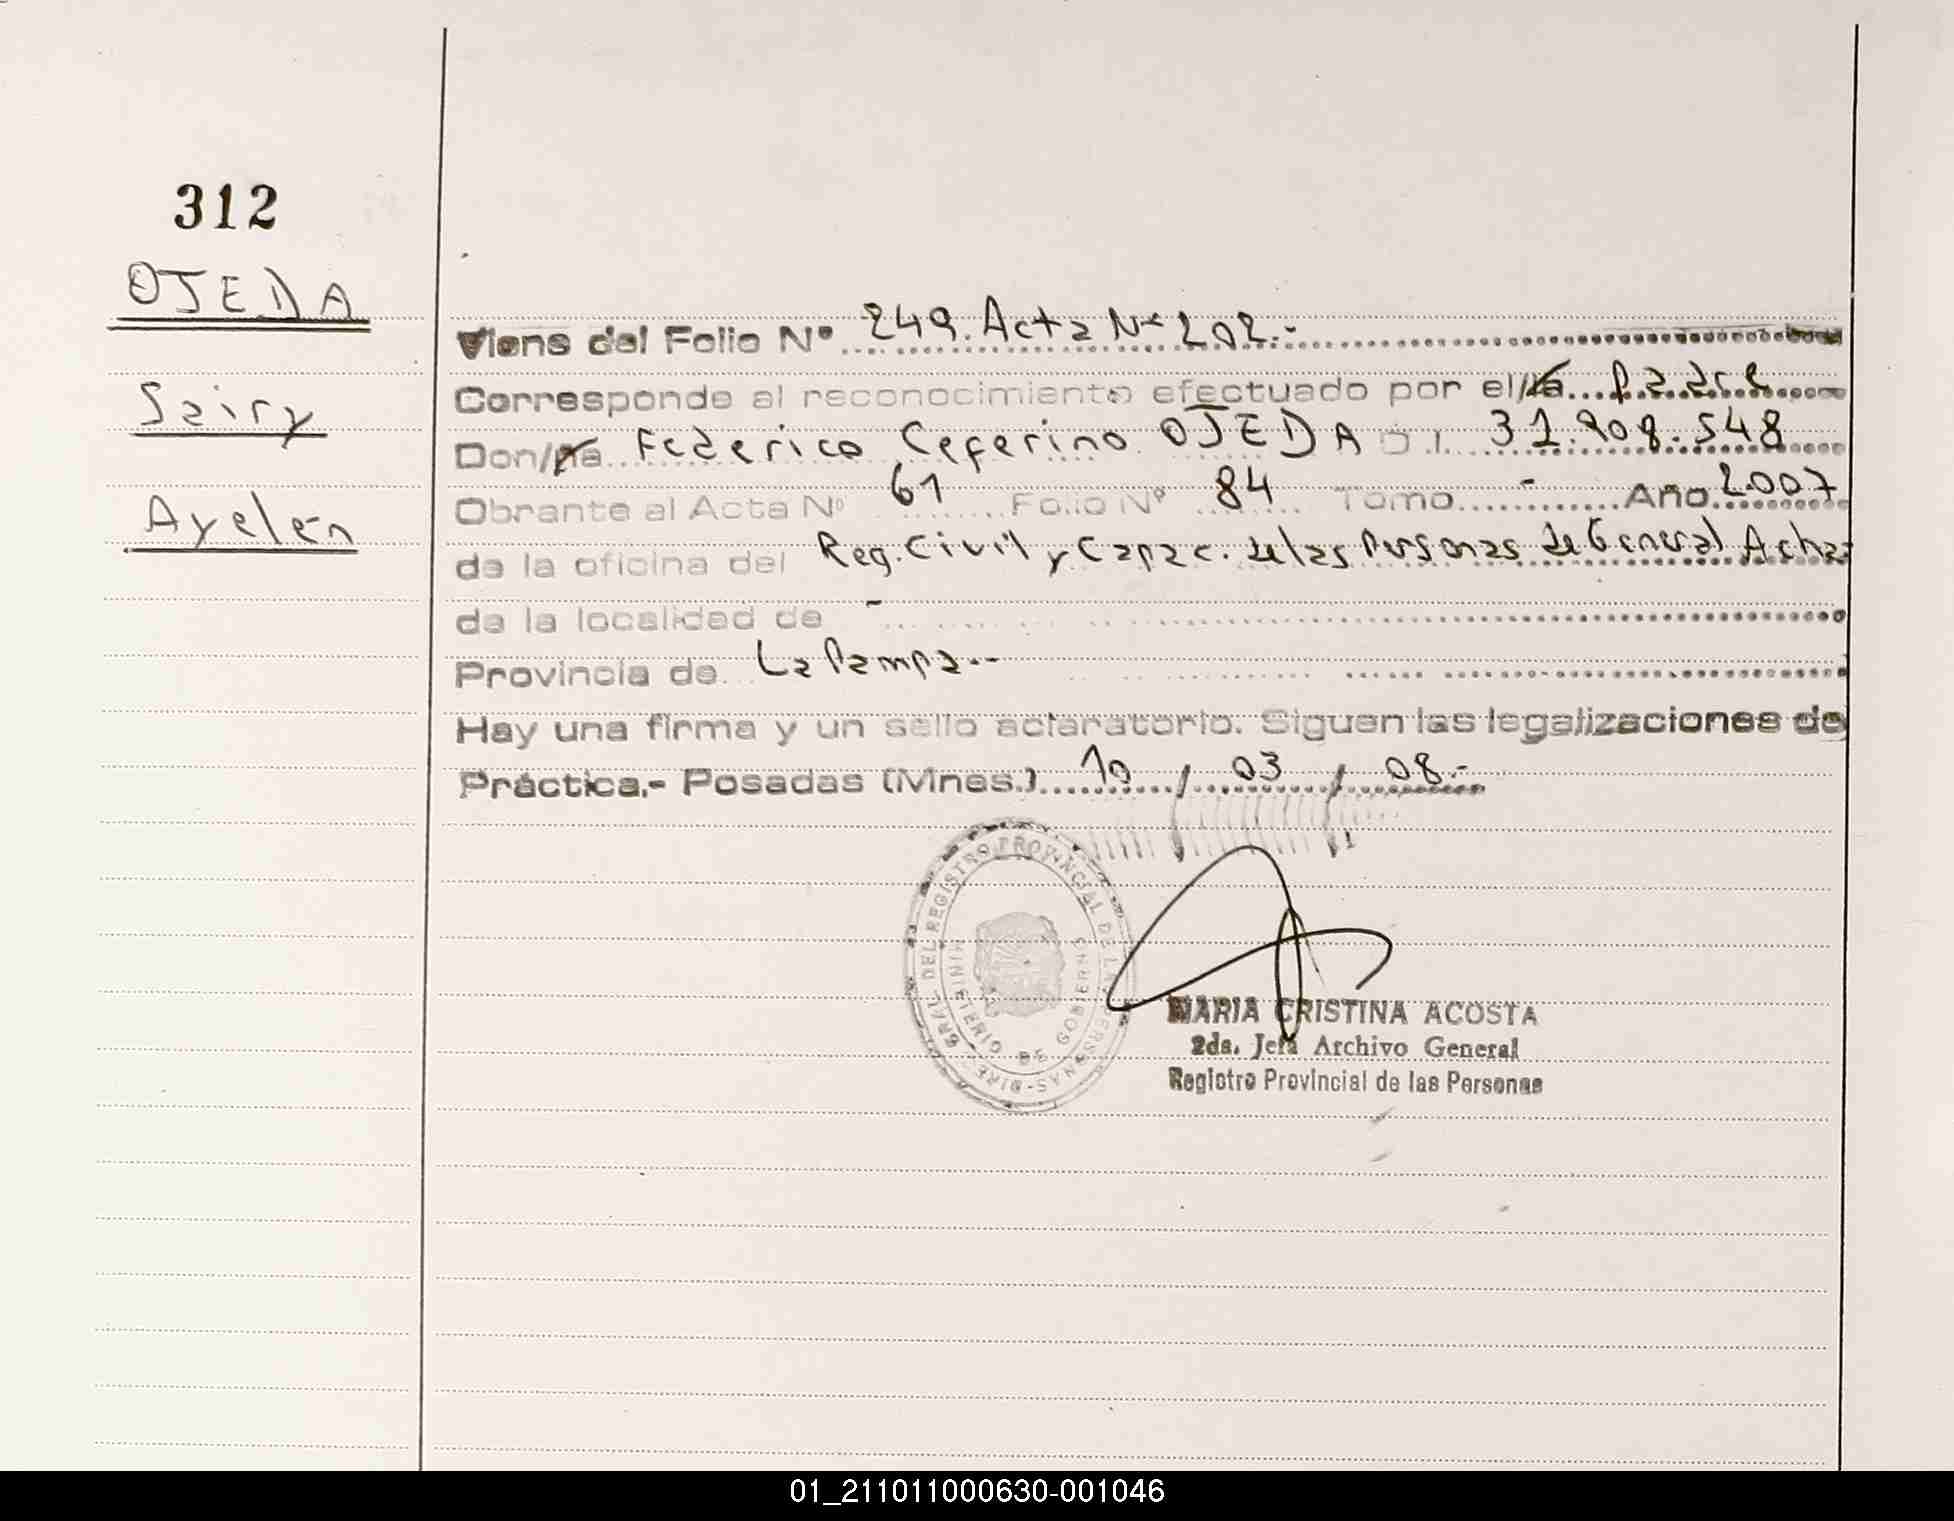 312
OJEDA
Sairy
Ayelen
Viene del Folio Nº 249. Acta Nº 202.-
Corresponde al reconocimiento efectuado por el/la
Don/ña Federico Ceferino OJEDA D.I. 31.908.548
Obrante al Acta Nº 61 Folio Nº 84 Tomo - Año 2007
de la oficina del Reg. Civil y Capac. de las Personas de General Acha
de la localidad de -
Provincia de La Pampa.-
Hay una firma y un sello aclaratorio. Siguen las legalizaciones de
Práctica.- Posadas (Mnes.) 10 / 03 / 08.-
GRAL. DEL REGISTRO PROVINCIAL DE LAS PERSONAS-DIRE
MINISTERIO DE GOBIERNO
MARIA CRISTINA ACOSTA
2da. Jefa Archivo General
Registro Provincial de las Personas
01_211011000630-001046